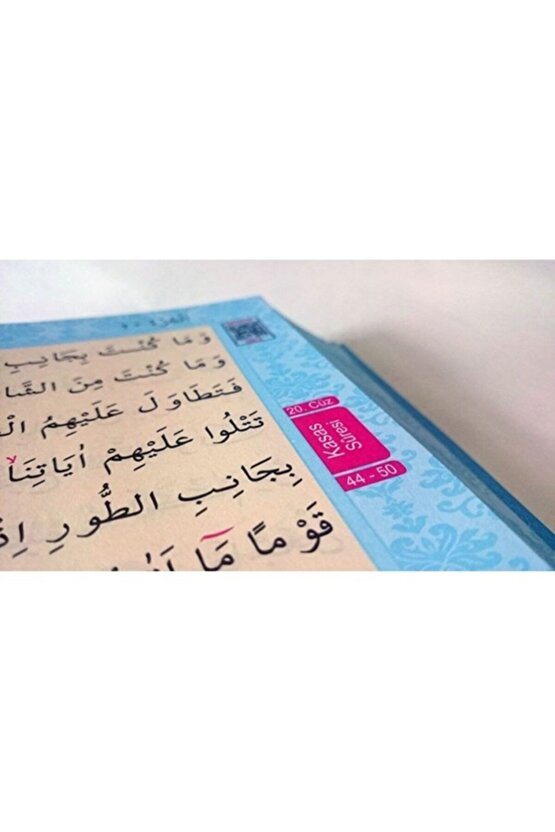 وَمَا كُنْتَ بِجَانِبِ
وَمَا كُنْتَ مِنَ
فَتَطَاوَلَ عَلَيْهِمُ
تَتْلُوا عَلَيْهِمْ اٰيَاتِنَاۙ
بِجَانِبِ الطُّورِ
قَوْمًا مَٓا
20. Cüz
Kasas
Sûresi
44 - 50